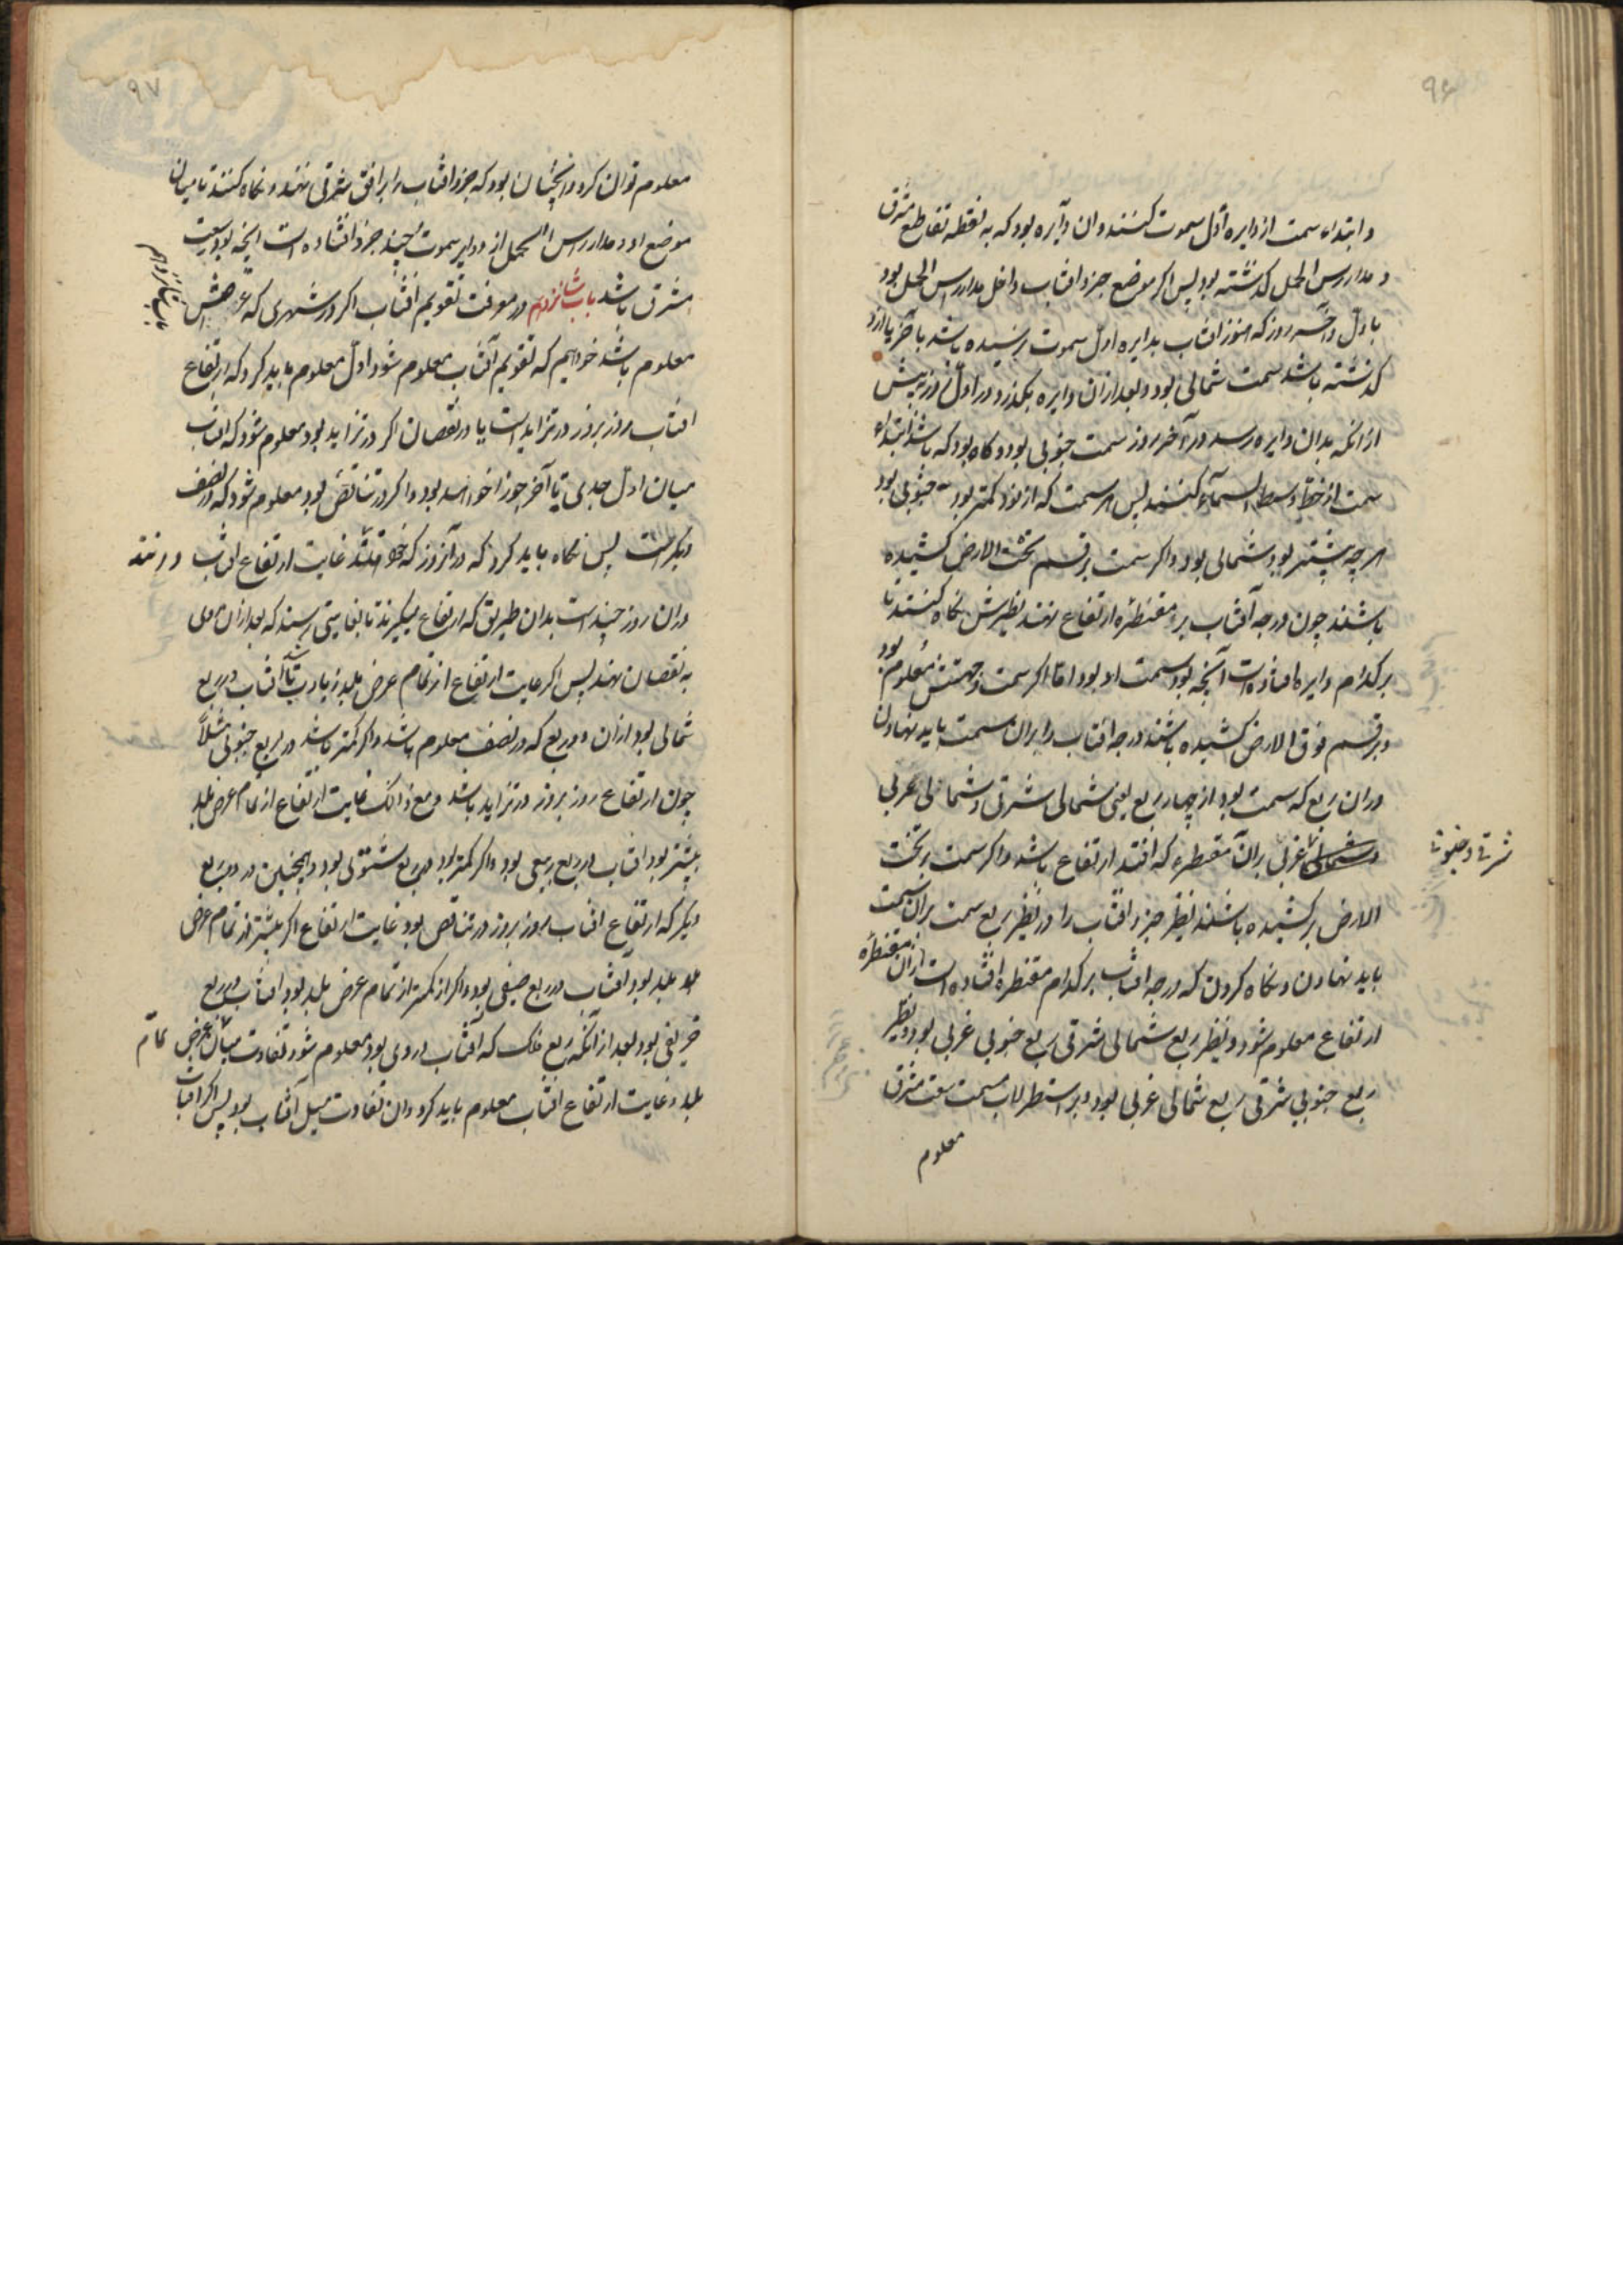 ۹۶
و ابتداء سمت از دایره اول سموت کنند و ان دآیره بود که به نقطه تقاطع مشرق
و مدار راس الحمل کذشته بود پس اکر موضع جزو افتاب داخل مدار راس الحمل بود
باول و آخر روز که هنوز افتاب بدایره اول سموت نرسیده باشد یا آخر یا ازو
کذشته باشد سمت شمالی بود و بعد ازان دایره بکذرد و در اول روز پیش
ازانکه بدان دایره رسد و در آخر روز سمت جنوبی بود و کاه بود که باشد ابتداء
سمت از خط وسط السمآء کنند پس هر سمت که از نود کمتر بود جنوبی بود
هر چه بیشتر بود شمالی بود و اکر سمت بر قسم تحت الارض کشیده
باشند چون درجه آفتاب بر مقنطره ارتفاع نهند نظیرش نکاه کنند تا
بر کدام دایره افتاده است آنچه بود سمت او بود اما اکر سمت و جهتش معلوم بود
و بر قسم فوق الارض کشیده باشند درجه افتاب را بران سمت باید نهادن
دران ربع که سمت بود از چهار ربع یعنی شمالی شرقی و شمالی غربی
و شمالی غربی بران مقنطره که افتد ارتفاع باشد و اکر سمت بر تحت
شرقی و جنوبی
الارض بر کشیده باشند نظیر جزو افتاب را در نظیر ربع سمت بران سمت
باید نهادن و نکاه کردن که درجه افتاب بر کدام مقنطره افتاده است ازان مقنطره
ارتفاع معلوم شود و نظیر ربع شمالی شرقی ربع جنوبی غربی بود و نظیر
ربع جنوبی شرقی ربع شمالی غربی بود و بر اسطرلاب سمت سعت مشرق
معلوم
۹۷
معلوم توان کرد و انچنان بود که جزو افتاب را بر افق شرقی نهند و نکاه کنند تا میان
موضع او و مدار راس الحمل از دوایر سموت چند جزو افتاده است انچه بود سعت
مشرق باشد باب شانزدهم در معرفت تقویم افتاب اکر در شهری که عرضش
معلوم باشد خواهیم که تقویم آفتاب معلوم شود اول معلوم باید کرد که ارتفاع
افتاب روز بروز در تزاید است یا در نقصان اکر در تزاید بود معلوم شود که افتاب
میان اول جدی تا آخر جوزا خواهد بود و اکر در تناقص بود معلوم شود که در نصف
دیکر است پس نکاه باید کرد که در آنروز که خواهند غایت ارتفاع افتاب در
دران روز چند است بدان طریق که ارتفاع میکیرند تا بغایتی رسد که بعد ازان روی
به نقصان نهد پس اکر غایت ارتفاع از تمام عرض بلد زیادت باشد آفتاب در ربع
شمالی بود ازان دو ربع که در نصف معلوم باشد و اکر کمتر باشد در ربع جنوبی مثلاً
چون ارتفاع روز بروز در تزاید باشد و مع ذالک غایت ارتفاع از تمام عرض بلد
بیشتر بود افتاب در ربع ربیعی بود و اکر کمتر بود در ربع شتوی بود و همچنین در دو ربع
دیکر که ارتفاع افتاب روز بروز در تناقص بود غایت ارتفاع اکر بیشتر از تمام عرض
بلد بود آفتاب در ربع صیفی بود و اکر از کمتر از تمام عرض بلد بود افتاب در ربع
خریفی بود بعد ازآنکه ربع فلک که آفتاب در وی بود معلوم شود تفاوت میان عرض تمام
بلد و غایت ارتفاع افتاب معلوم باید کرد و ان تفاوت میل آفتاب بود پس اکر افتاب